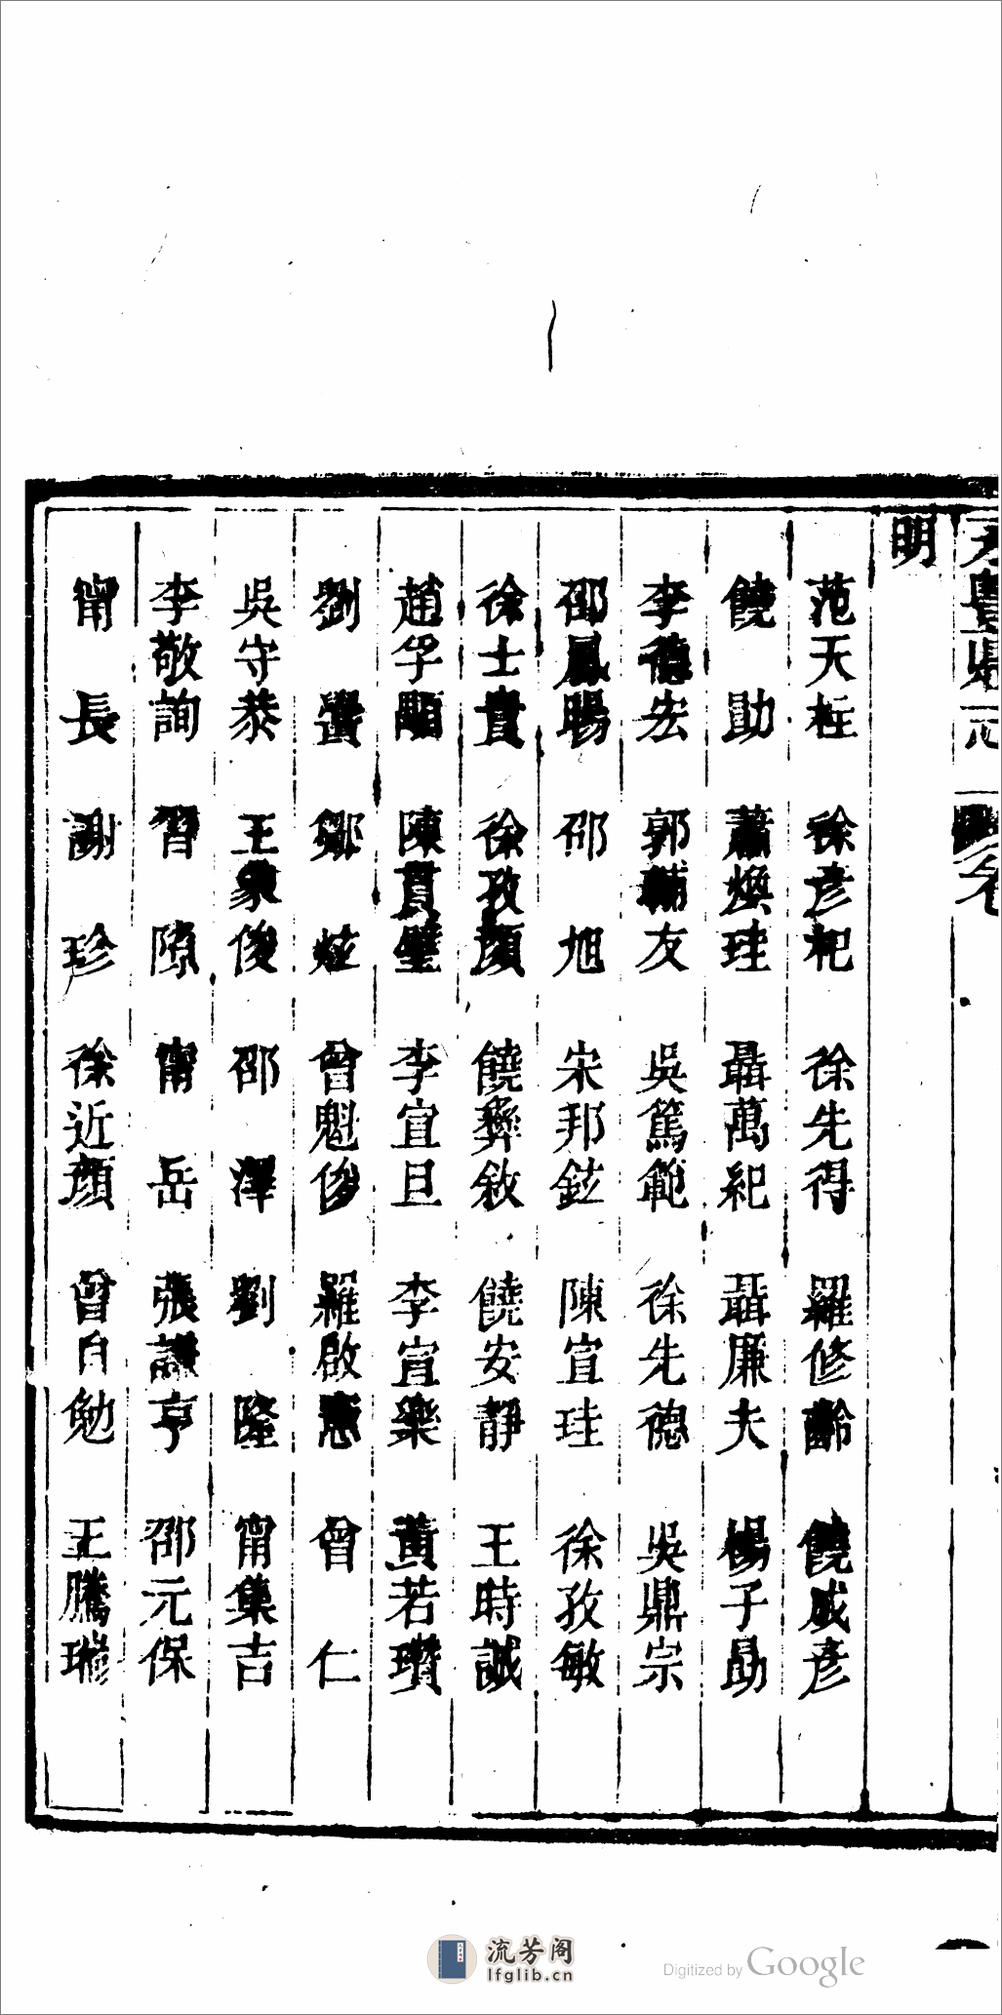 永豐縣志 卷
明
范天柱 徐彥杞 徐先得 羅修齡 饒成彥
饒勛 蕭煥珪 聶萬紀 聶廉夫 楊子勗
李德宏 郭輔友 吳篤範 徐先德 吳鼎宗
邵鳳暘 邵旭 宋邦鉉 陳宜珪 徐孜敏
徐士貴 徐孜顏 饒彜敘 饒安靜 王時誠
趙孚顒 陳貫璧 李宜旦 李宜樂 黃若瓚
劉 鄒炫 曾魁俊 羅啟 曾仁
吳守恭 王象俊 邵澤 劉隆 甯集吉
李敬詢 習隙 甯岳 張謙亨 邵元保
甯長 謝珍 徐近顏 曾自勉 王騰
流芳阁
lfglib.cn
Digitized by Google